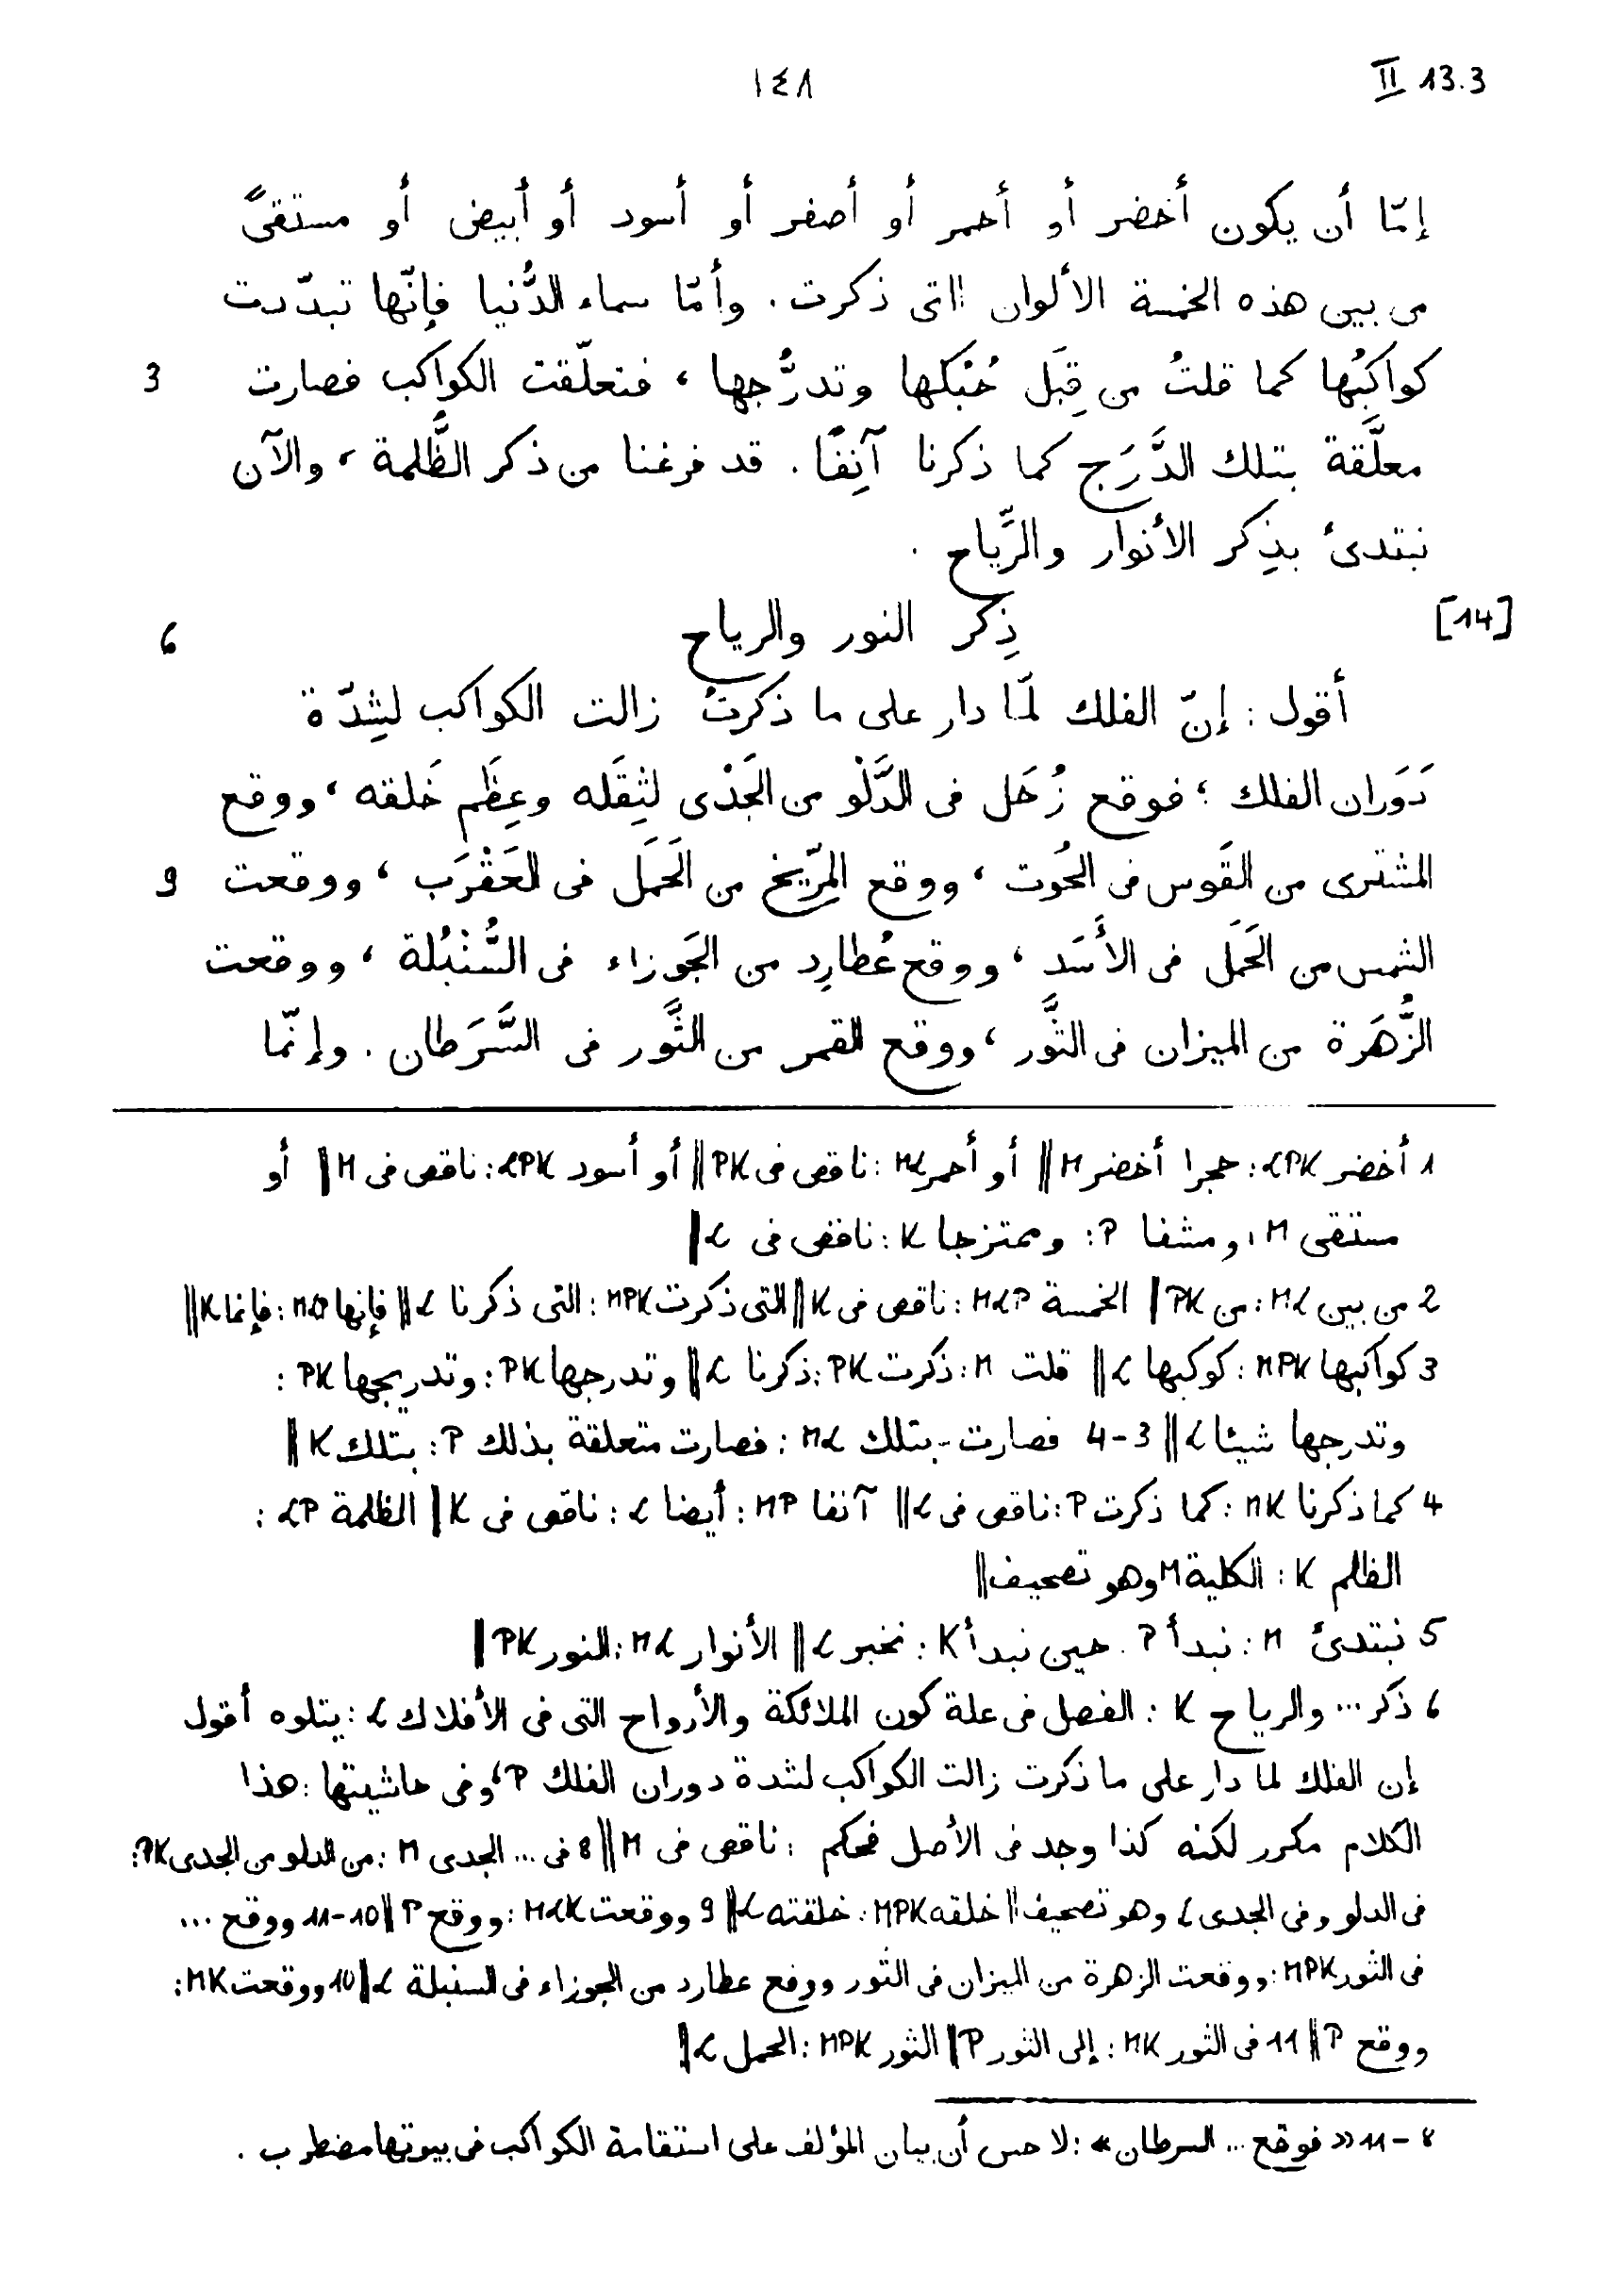 ١٤٨ II 13.3
إمّا أن يكون أخضر أو أحمر أو أصفر أو أسود أو أبيض أو مستقىً
من بين هذه الخمسة الألوان التى ذكرت . وأمّا سماء الدُّنيا فإنّها تبدّدت
3 كواكبُها كما قلتُ من قِبَل حُبُكها وتدرُّجها ، فتعلّقت الكواكب فصارت
معلَّقة بتلك الدَّرَج كما ذكرنا آنِفًا . قد فرغنا من ذكر الظُّلمة ، والآن
نبتدئ بذِكر الأنوار والرِّياح .
6 ذِكر النور والرياح [14]
أقول : إنّ الفلك لمّا دار على ما ذكرتُ زالت الكواكب لشِدّة
دَوَران الفلك ؛ فوقع زُحَل فى الدَّلْو من الجَدْى لثِقَله وعِظَم خَلقه ، ووقع
9 المشترى من القَوس فى الحُوت ، ووقع المِرّيخ من الحَمَل فى العَقْرَب ، ووقعت
الشمس من الحَمَل فى الأَسَد ، ووقع عُطارِد من الجَوزاء فى السُّنْبُلة ، ووقعت
الزُّهَرة من الميزان فى الثَّور ، ووقع القمر من الثَّور فى السَّرَطان . وإنّما
1 أخضر LPK : حجرا أخضر M || أو أحمر ML : ناقص فى PK || أو أسود LPK : ناقص فى M || أو
مستقى M ، ومشفا P : وممتزجا K : ناقص فى L ||
2 من بين ML : من PK || الخمسة MLP : ناقص فى K || التى ذكرت MPK : التى ذكرنا L || فإنها MLP : فإنما K ||
3 كواكبها MPK : كوكبها L || قلت M : ذكرت PK : ذكرنا L || وتدرجها PK : وتدريجها PK :
وتدرجها شيئا L || 3-4 فصارت - بتلك ML : فصارت متعلقة بذلك P : بتلك K ||
4 كما ذكرنا MK : كما ذكرت P : ناقص فى L || آنفا MP : أيضا L : ناقص فى K || الظلمة LP :
الظلم K : الكلية M وهو تصحيف ||
5 نبتدئ M : نبدأ P . حين نبدأ K : نخبر L || الأنوار ML : النور PK ||
6 ذكر ... والرياح K : الفصل فى علة كون الملائكة والأرواح التى فى الأفلاك L : يتلوه أقول
إن الفلك لما دار على ما ذكرت زالت الكواكب لشدة دوران الفلك P ، وفى حاشيتها : هذا
الكلام مكرر لكنه كذا وجد فى الأصل فحكم : ناقص فى M || 8 فى ... الجدى M : من الدلو من الجدى PK :
فى الدلو وفى الجدى L وهو تصحيف || خلقه MPK : خلقته L || 9 ووقعت MLK : ووقع P || 10-11 ووقع ...
فى الثور MPK : ووقعت الزهرة من الميزان فى الثور ووقع عطارد من الجوزاء فى السنبلة L || 10 ووقعت MK :
ووقع P || 11 فى الثور MK : إلى الثور P || الثور MPK : الحمل L ||
8-11 «فوقع ... السرطان» : لا أن بيان المؤلف على استقامة الكواكب فى بيوتها مضطرب .